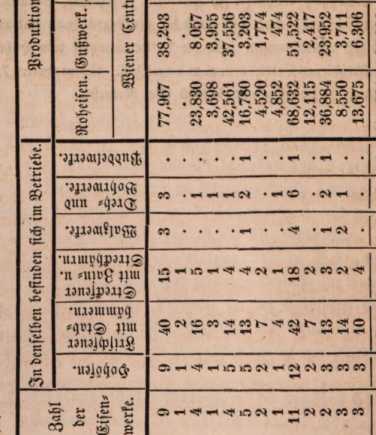 In denselben befinden sich im Betriebe. Produktion
Zahl der Eisen-werke. Hohöfen. Frischfeuer mit Stab-hämmern Streckfeuer mit Zain- u. Streckhämrn Walzwerke. Dreh- und Bohrwerke. Puddelwerke. Roheisen. Gußwerk.
Wiener Centn
9 9 40 15 3 3 . 77,967 38,293
1 1 2 1 . . . . .
4 4 16 5 . 1 . 23,830 8,057
1 1 3 1 . 1 . 3,698 3,955
4 5 14 4 . 1 . 42,561 37,556
5 5 13 4 1 2 1 16,780 3,203
2 2 7 2 . . . 4,520 1,774
1 1 4 1 . 1 . 4,852 474
11 12 42 18 4 6 1 68,632 51,522
2 2 7 2 . . . 12,115 2,417
2 3 13 3 1 2 1 36,884 23,952
3 3 14 2 2 1 . 8,550 3,711
3 3 10 4 . . . 13,675 6,306